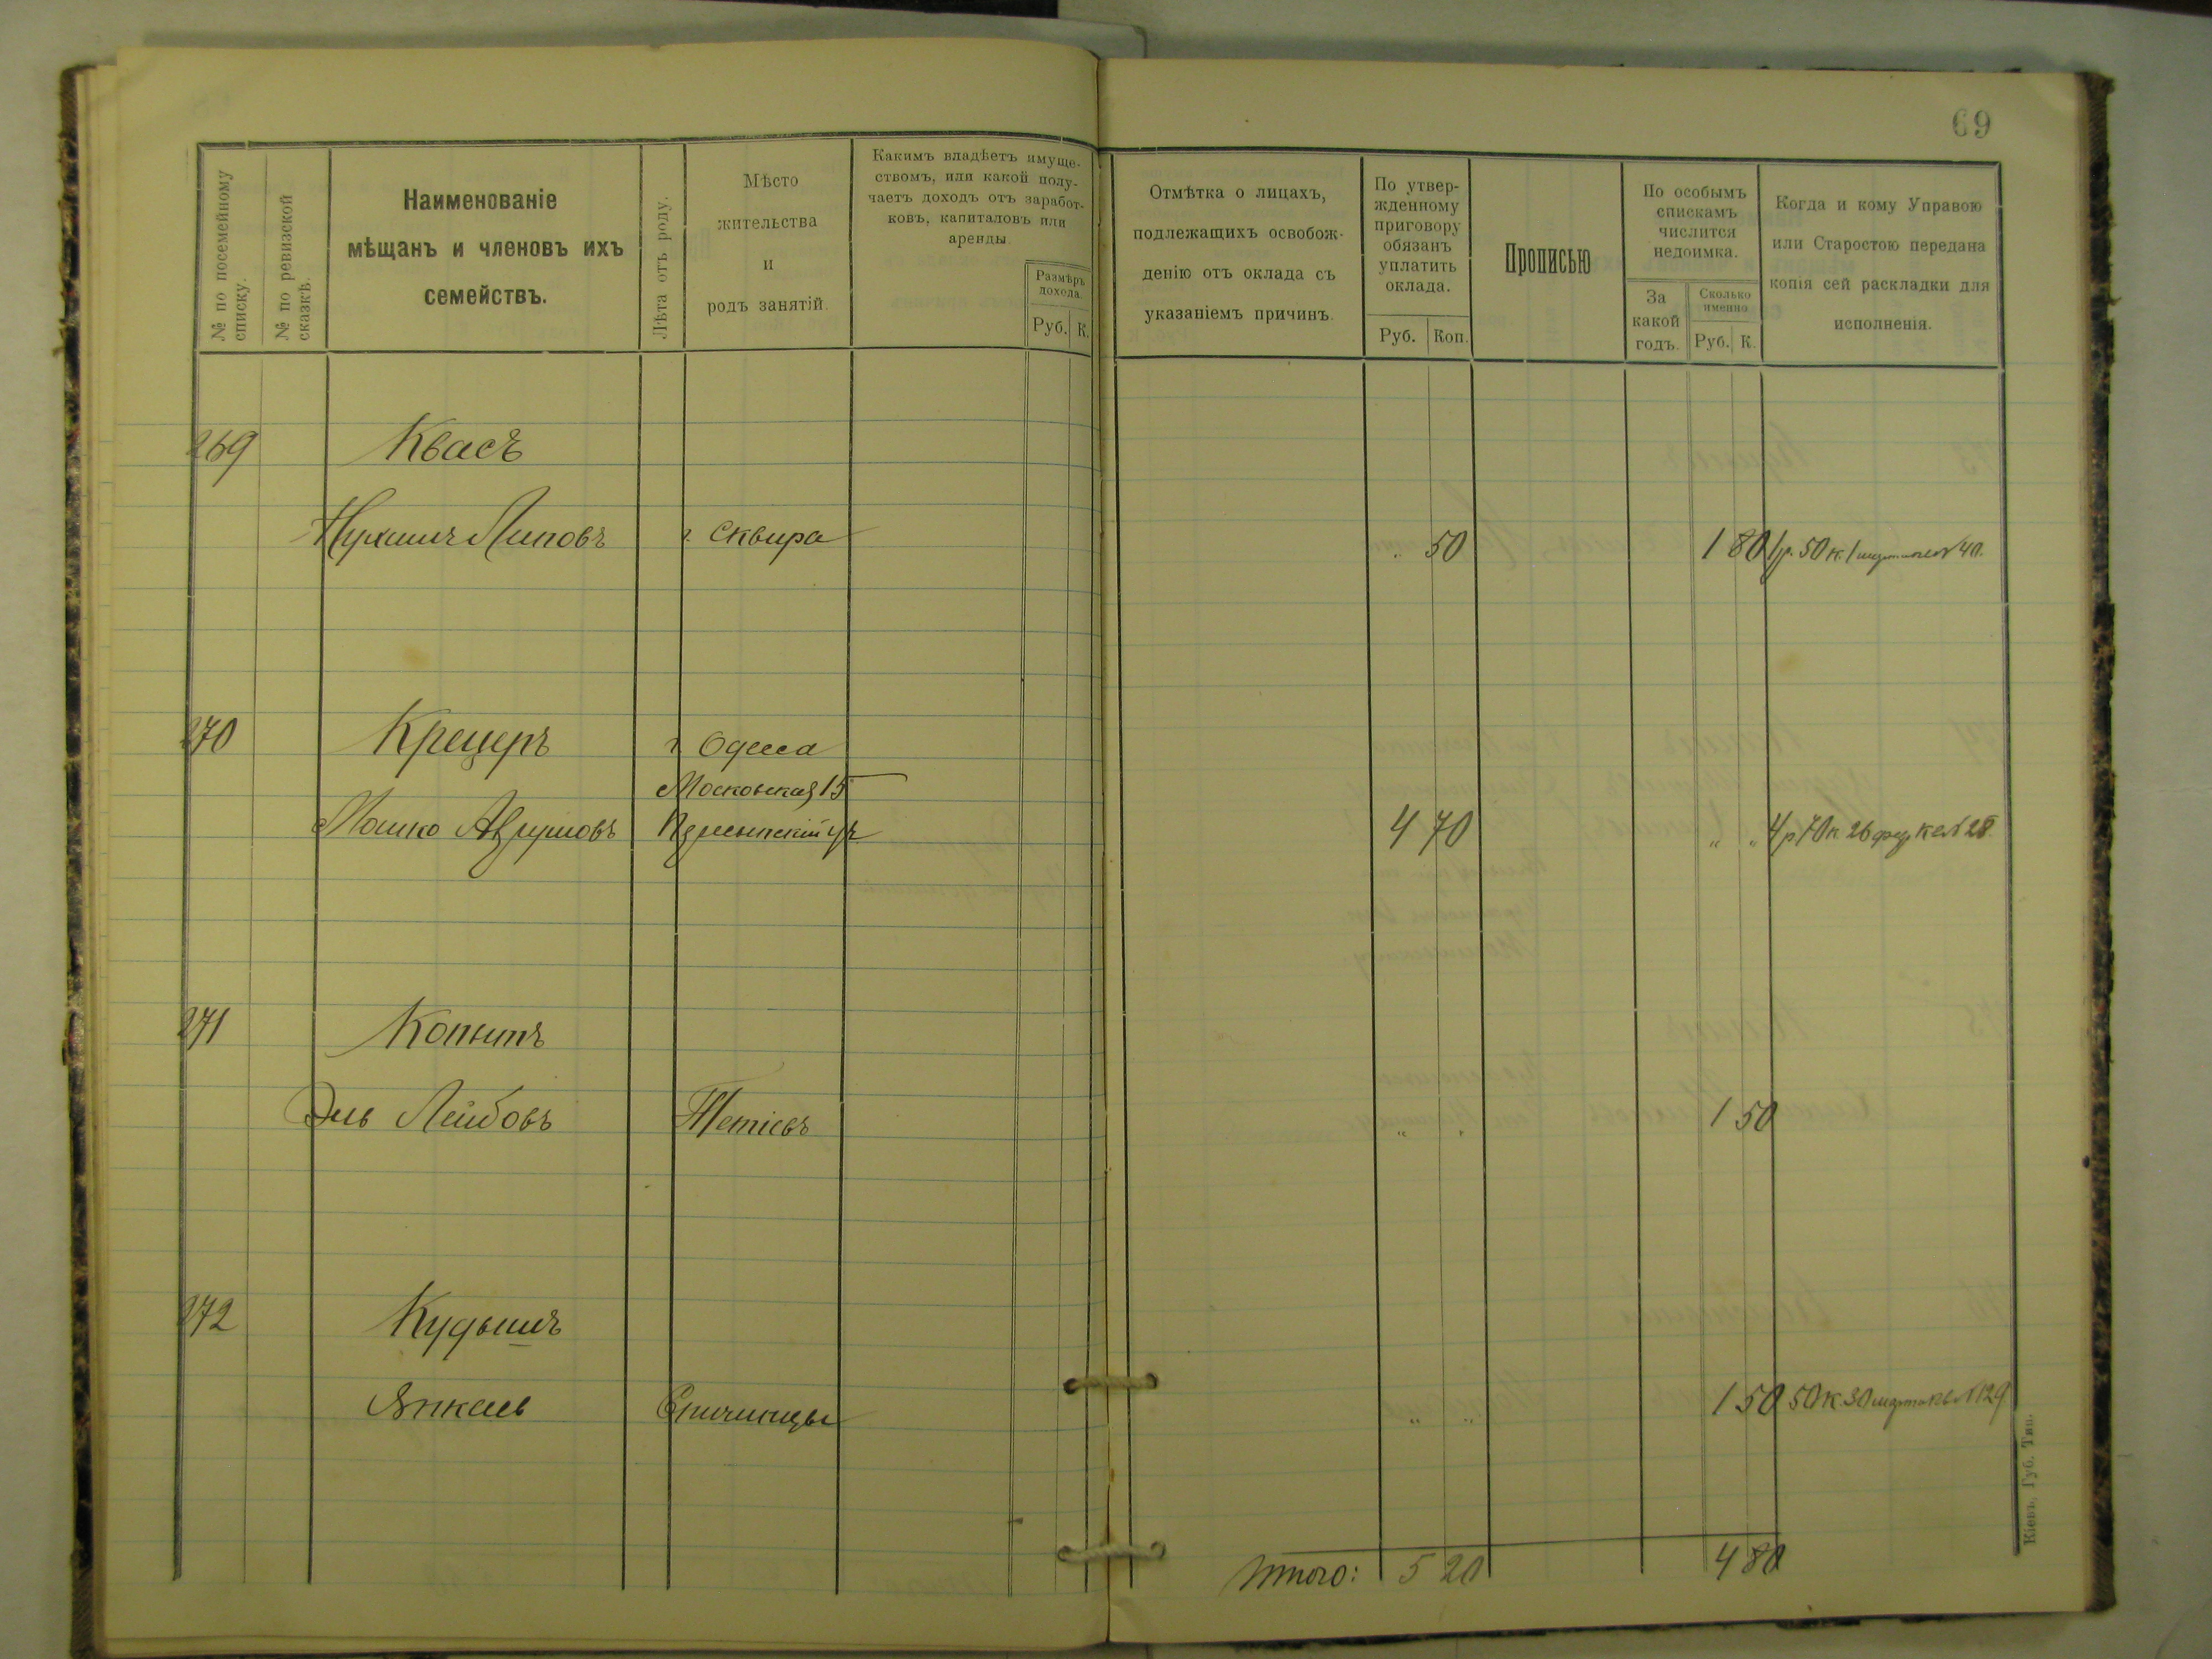 69
№ по посемейному списку.
№ по ревизской сказкѣ.
Наименованіе
мѣщанъ и членовъ ихъ
семействъ.
Лѣта отъ роду.
Мѣсто
жительства
и
родъ занятій.
Какимъ владѣетъ имуще-
ствомъ, или какой полу-
чаетъ доходъ отъ заработ-
ковъ, капиталовъ или
аренды.
Размѣръ
дохода.
Руб. К.
Отмѣтка о лицахъ,
подлежащихъ освобож-
денію отъ оклада съ
указаніемъ причинъ.
По утвер-
жденному
приговору
обязанъ
уплатить
оклада.
Руб. Коп.
Прописью
По особымъ
спискамъ
числится
недоимка.
За
какой
годъ.
Сколько
именно
Руб. К.
Когда и кому Управою
или Старостою передана
копія сей раскладки для
исполненія.
269 Квасъ
Нухимъ Липовъ г. Сквира . 50 1 80 1 р. 50 к. 1 марта № 40.
270 Крецеръ г. Одесса
Московская 15
Мошко Аврумовъ 4 70 „ „ 4 р 70 к 26 фев кв № 28.
271 Копытъ
Эль Лейбовъ Тетіевъ „ „ 1 50
272 Кудышъ
Янкель Спичинцы „ „ 1 50 50 к. 30 марта кв № 129
Итого: 5 20 4 80
Кіевъ, Губ. Тип.